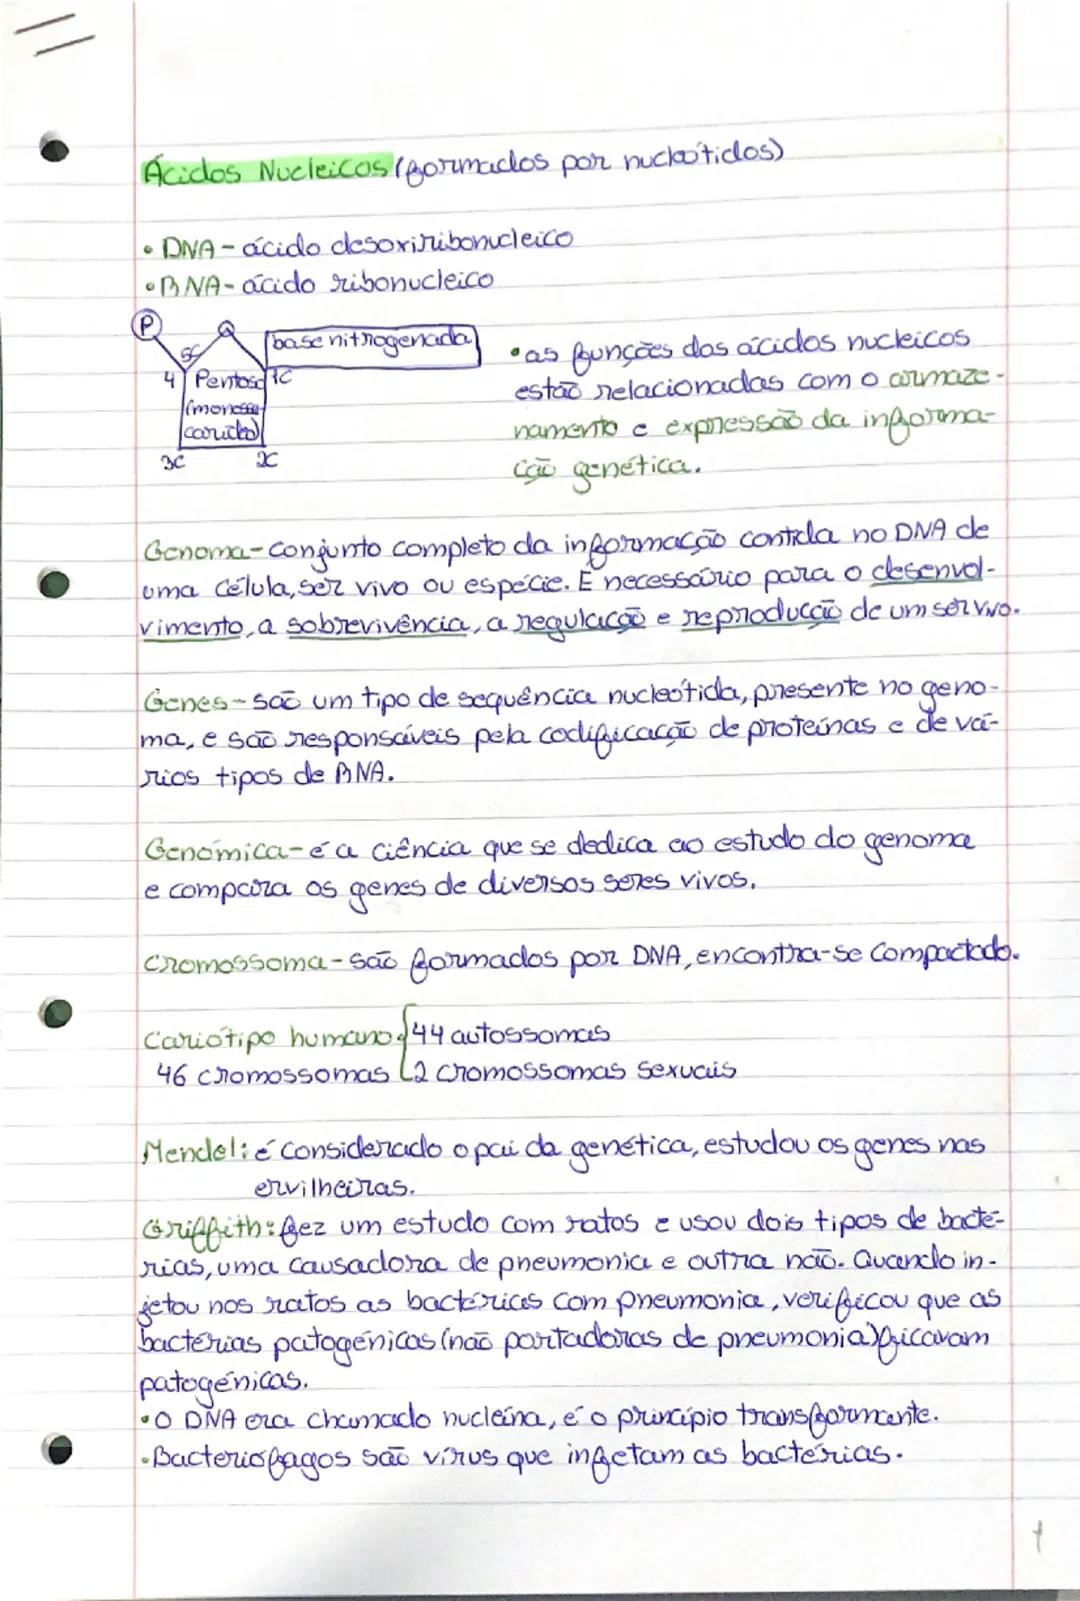 Ácidos Nucleicos (formados por nucleótidos)
• DNA - ácido desoxirribonucleico
• RNA - ácido ribonucleico
P
O
base nitrogenada
5C
4
Pentose
1C
(monossa-
carido)
3C
2C
• as funções dos ácidos nucleicos
estão relacionadas com o armaze-
namento e expressão da informa-
ção genética.
Genoma - conjunto completo da informação contida no DNA de
uma célula, ser vivo ou espécie. É necessário para o desenvol-
vimento, a sobrevivência, a regulação e reprodução de um ser vivo.
Genes - são um tipo de sequência nucleótida, presente no geno-
ma, e são responsáveis pela codificação de proteínas e de vá-
rios tipos de RNA.
Genómica - é a ciência que se dedica ao estudo do genoma
e compara os genes de diversos seres vivos.
Cromossoma - são formados por DNA, encontra-se compactado.
Cariótipo humano { 44 autossomas
46 cromossomas { 2 cromossomas sexuais
Mendel: é considerado o pai da genética, estudou os genes nas
ervilheiras.
Griffith: fez um estudo com ratos e usou dois tipos de bacté-
rias, uma causadora de pneumonia e outra não. Quando in-
jetou nos ratos as bactérias com pneumonia, verificou que as
bactérias patogénicas (não portadoras de pneumonia) ficavam
patogénicas.
• O DNA era chamado nucleína, é o princípio transformante.
• Bacteriófagos são vírus que infetam as bactérias.
1